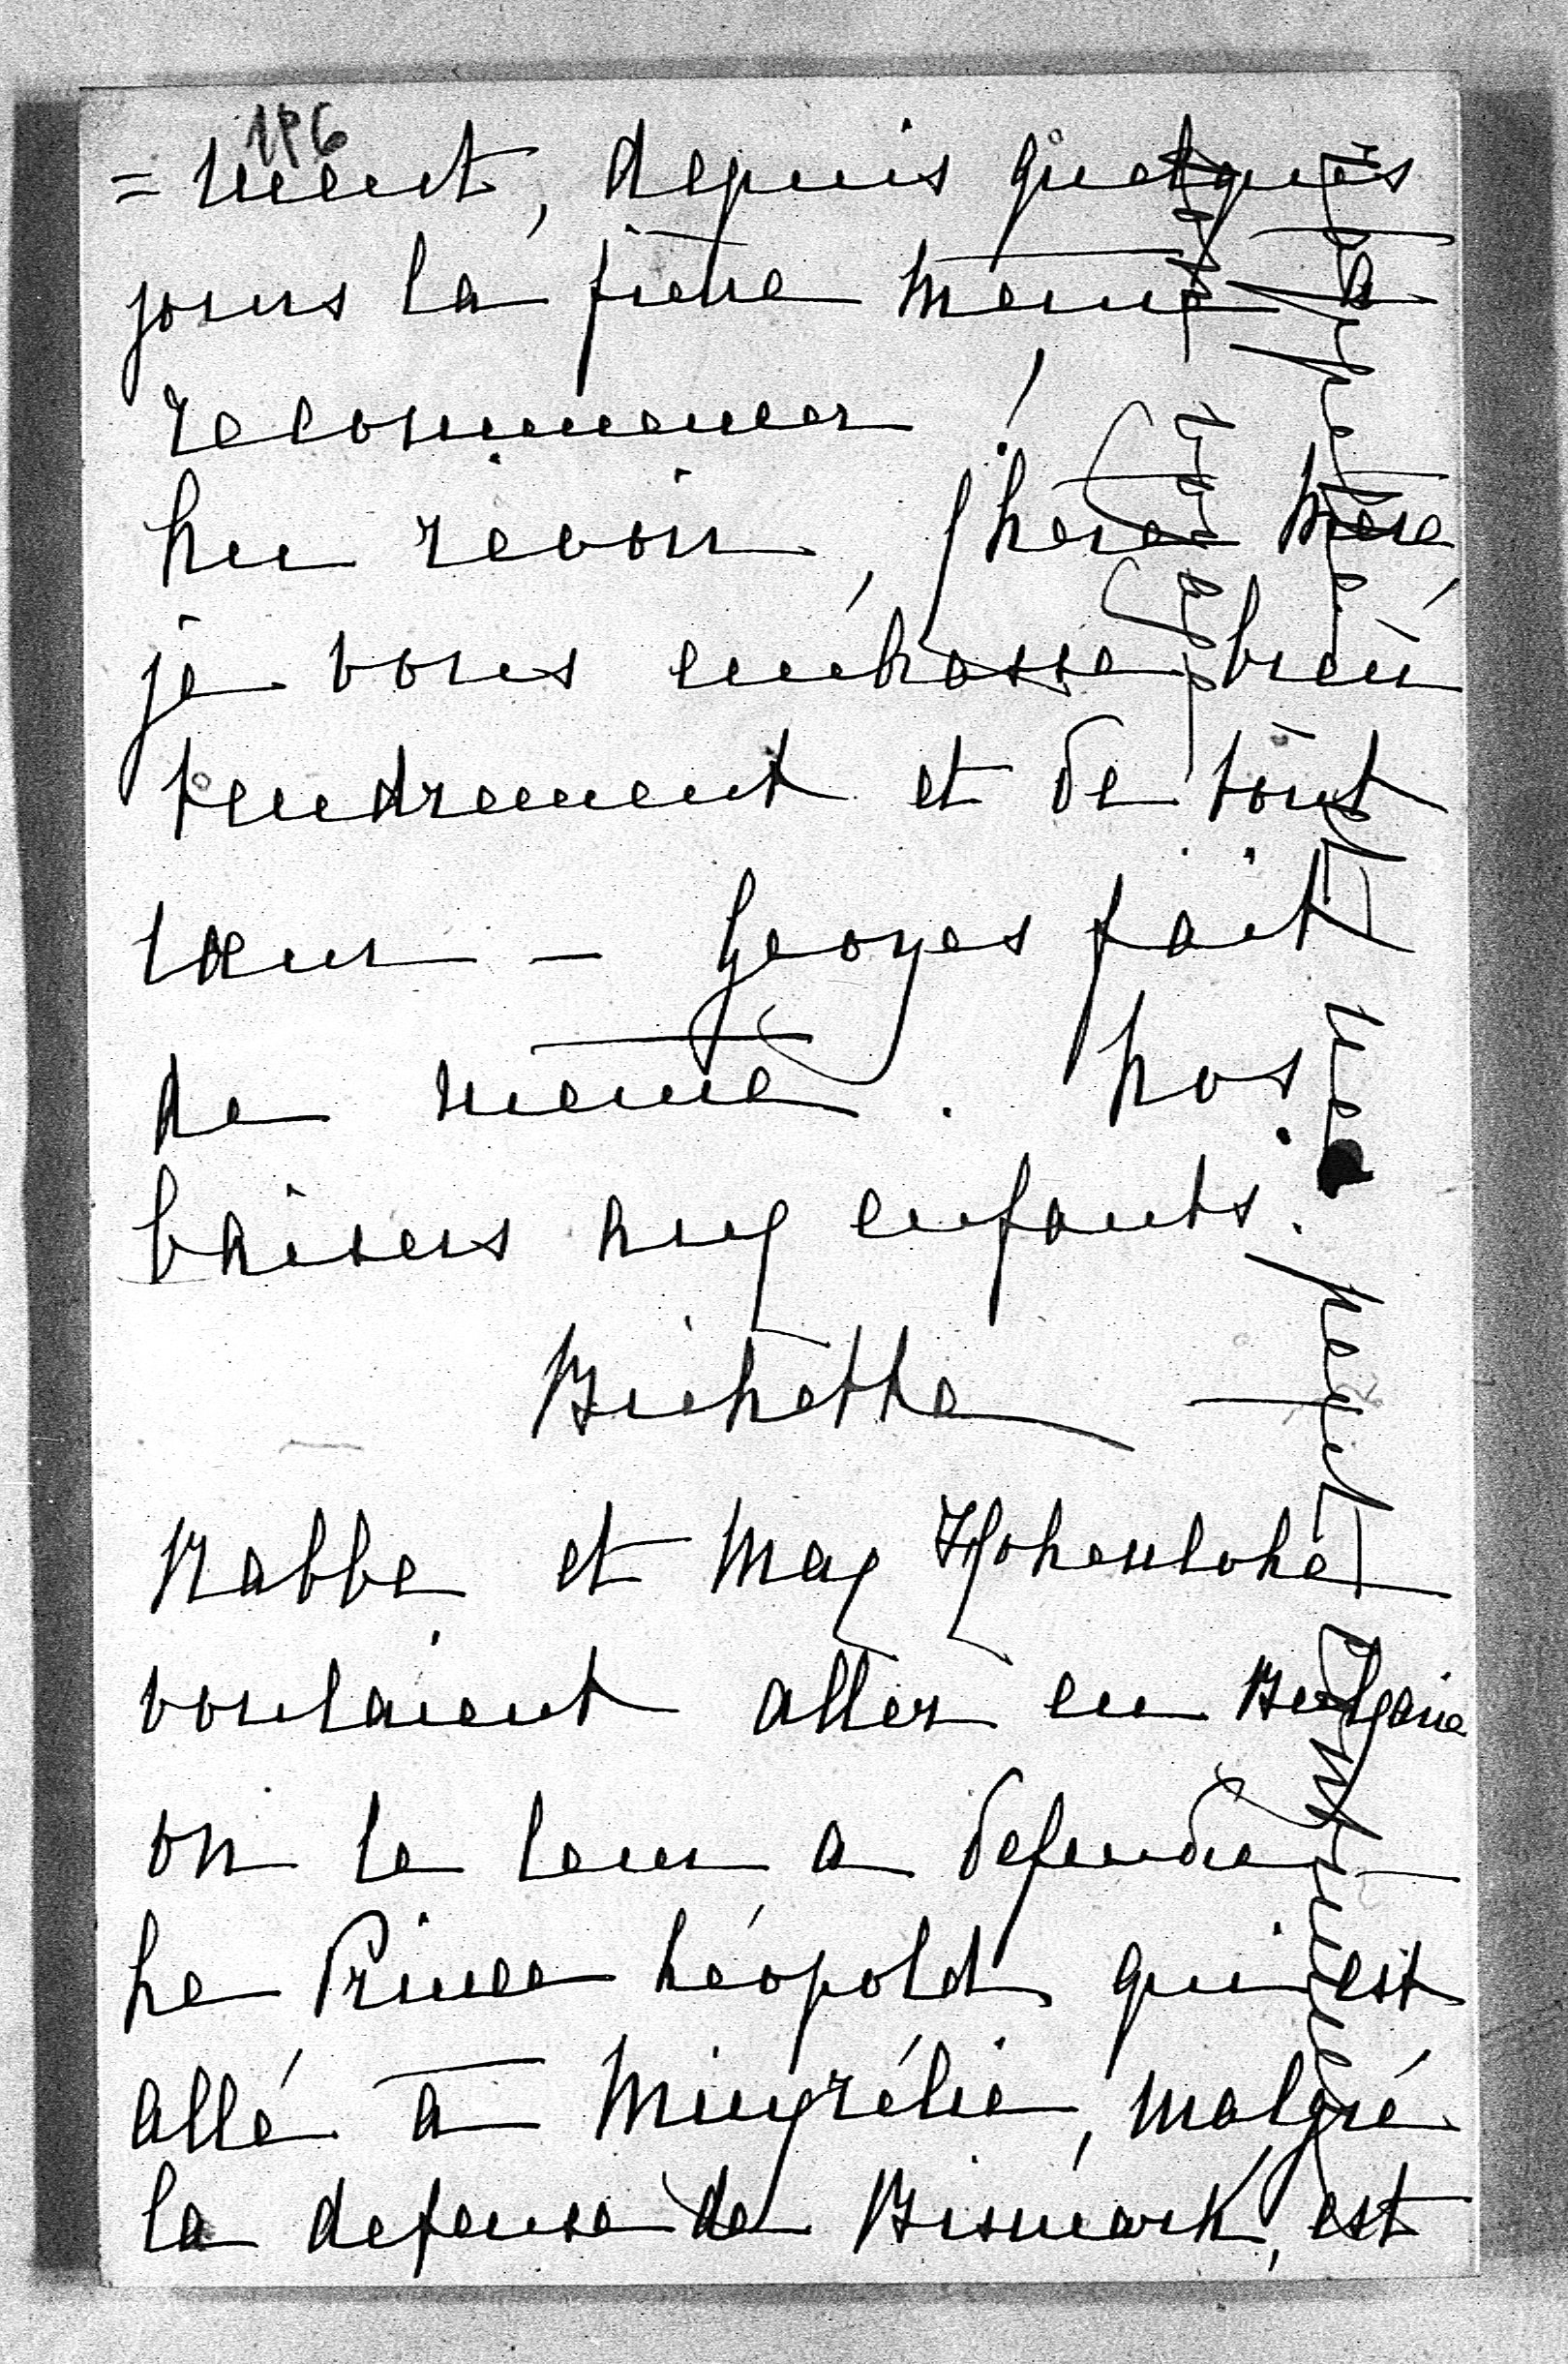 196
= ment, depuis quelques
jours la fièvre même a
recommencer !
Au revoir, chère Mère
je vous embrasse bien
tendrement et de tout
cœur — Georges fait
de même. Nos
baisers aux enfants.
Bichette
et Max Hohenlohe
voulaient aller en Bulgarie
on le leur a defendu
Le Prince Léopold qui est
allé a Mingrélie, malgré
la defense de Bismark, est